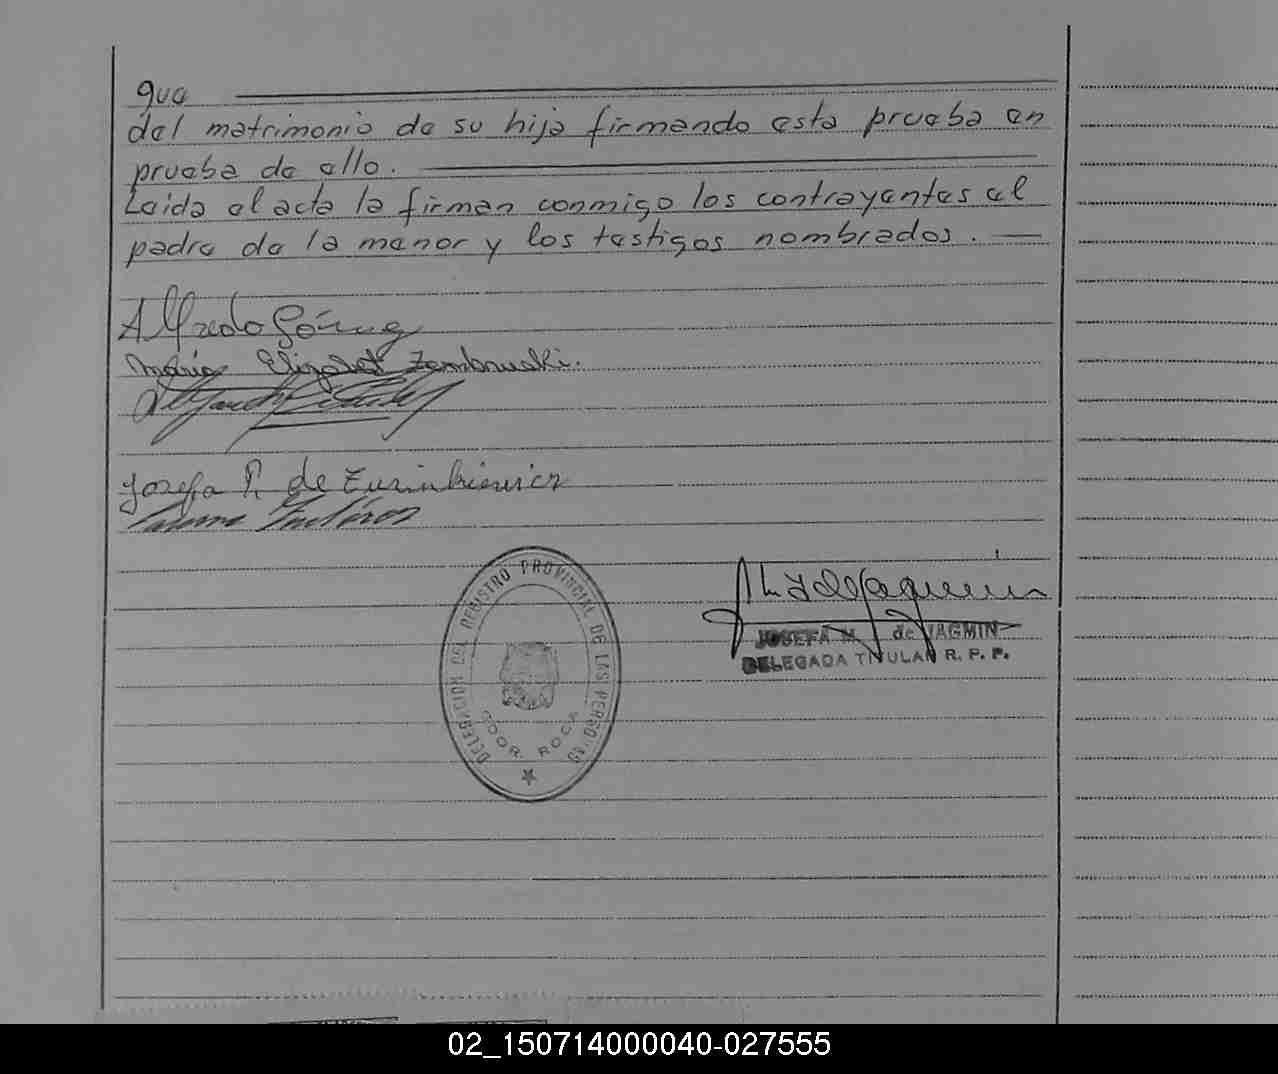 que
del matrimonio de su hija firmando esta prueba en
prueba de ello.
Leida el acta la firman conmigo los contrayentes el
padre de la menor y los testigos nombrados.
Alfredo Gómez
Maria Elizabet Zembruski.
Josefa P. de Zurinkiewicz
DELEGACION DEL REGISTRO PROVINCIAL DE LAS PERSONAS
GDOR. ROCA
JOSEFA M. de YAGMIN
DELEGADA TITULAR R. P. P.
02_150714000040-027555